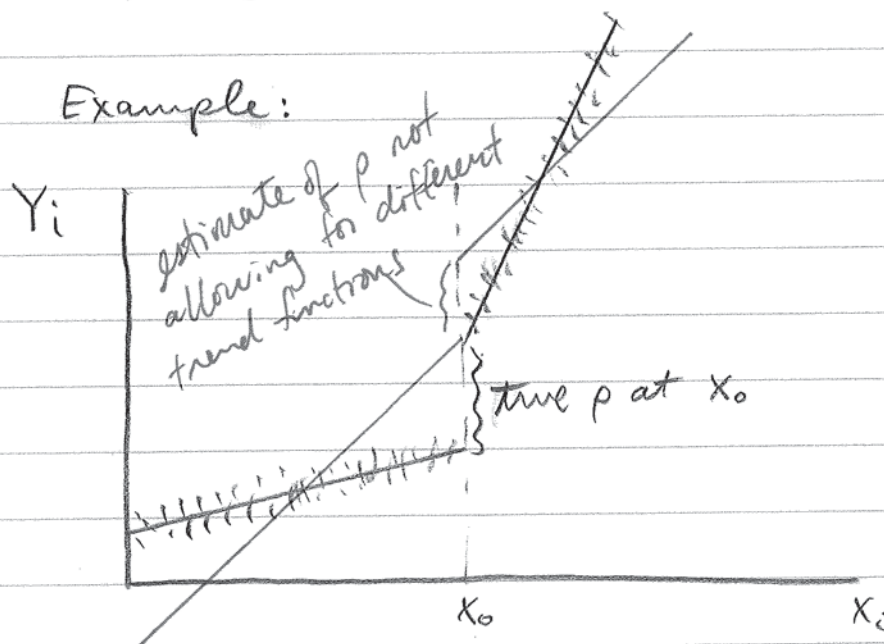 Example:
Yi
estimate of ρ not
allowing for different
trend functions
true ρ at x₀
x₀
xᵢ